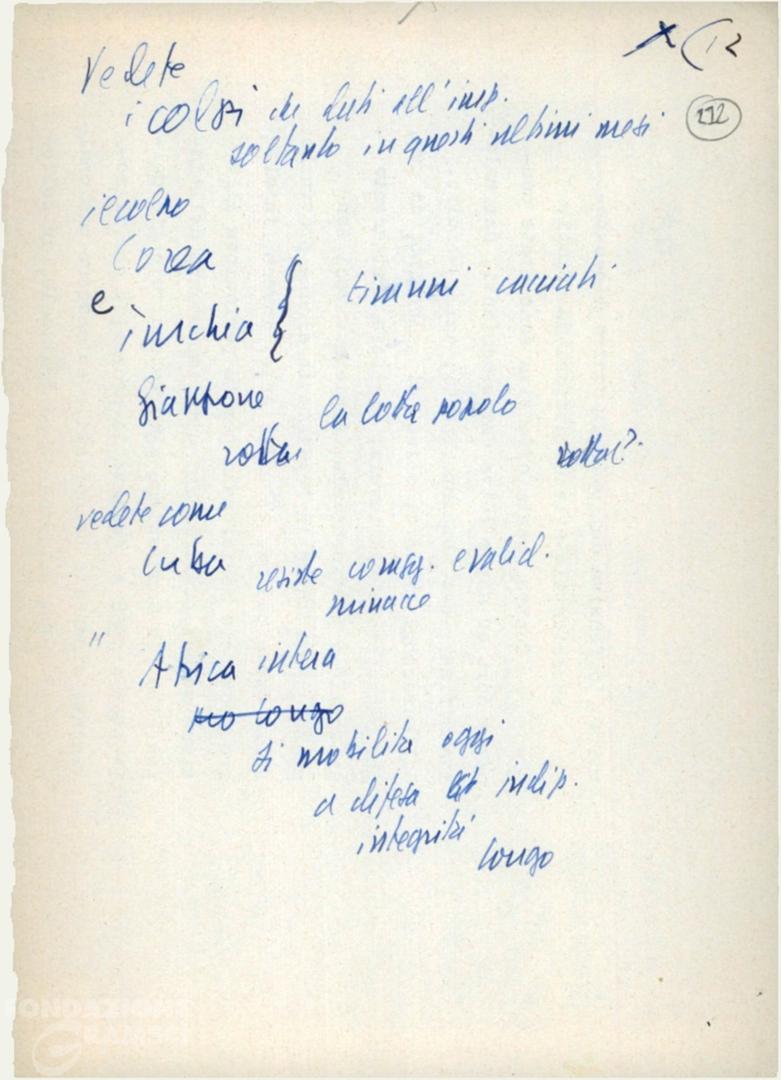 x (12
212
Vedete
i colpi che dati all'imp.
soltanto in questi ultimi mesi
Corea
e
Turchia } tiranni cacciati
Giappone la lotta popolo
vedete come
Cuba resiste coragg. e valid.
minacce
" Africa intera
si mobilita oggi
a difesa indip.
integrità
Congo
FONDAZIONE
GRAMSCI